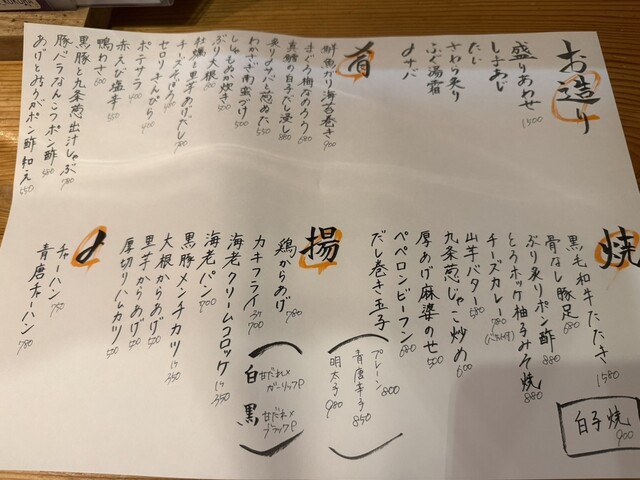 お造り
盛りあわせ 1500
しまあじ
たい
さわら炙り
ふぐ湯霜
〆サバ
肴
鮮魚ガリ海苔巻き 900
まぐろ梅なめろう 680
真鱈の白子だし浸し 880
炙り〆サバと葱ぬた 550
わかさぎ南蛮づけ 500
しゅもかぶ炊き 500
ぶり大根 800
牡蠣と里芋あげだし 980
チーズそぼろ
セロリきんぴら 400
ポテサラ 400
赤えび塩辛 550
鴨わさ 600
黒豚と九条葱出汁しゃぶ 780
豚バラなんこつポン酢 580
あげとみょうがポン酢和え 550
焼
黒毛和牛たたき 1580
骨なし豚足 680
ぶり炙りポン酢 880
とろホッケ柚子みそ焼 880
チーズカレー 780 (バケット付)
山芋バター 580
九条葱じゃこ炒め 600
厚あげ麻婆のせ 500
ペペロンビーフン 680
だし巻き玉子
プレーン 800
青唐辛子 850
明太子 980
白子焼 900
揚
鶏からあげ 780
白 甘だれ×ガーリックP
黒 甘だれ×ブラックP
カキフライ 3ケ 700
海老クリームコロッケ 1ケ 350
海老パン 700
黒豚メンチカツ 1ケ 350
大根からあげ 500
里芋からあげ 500
厚切りハムカツ 500
〆
チャーハン 750
青唐チャーハン 780